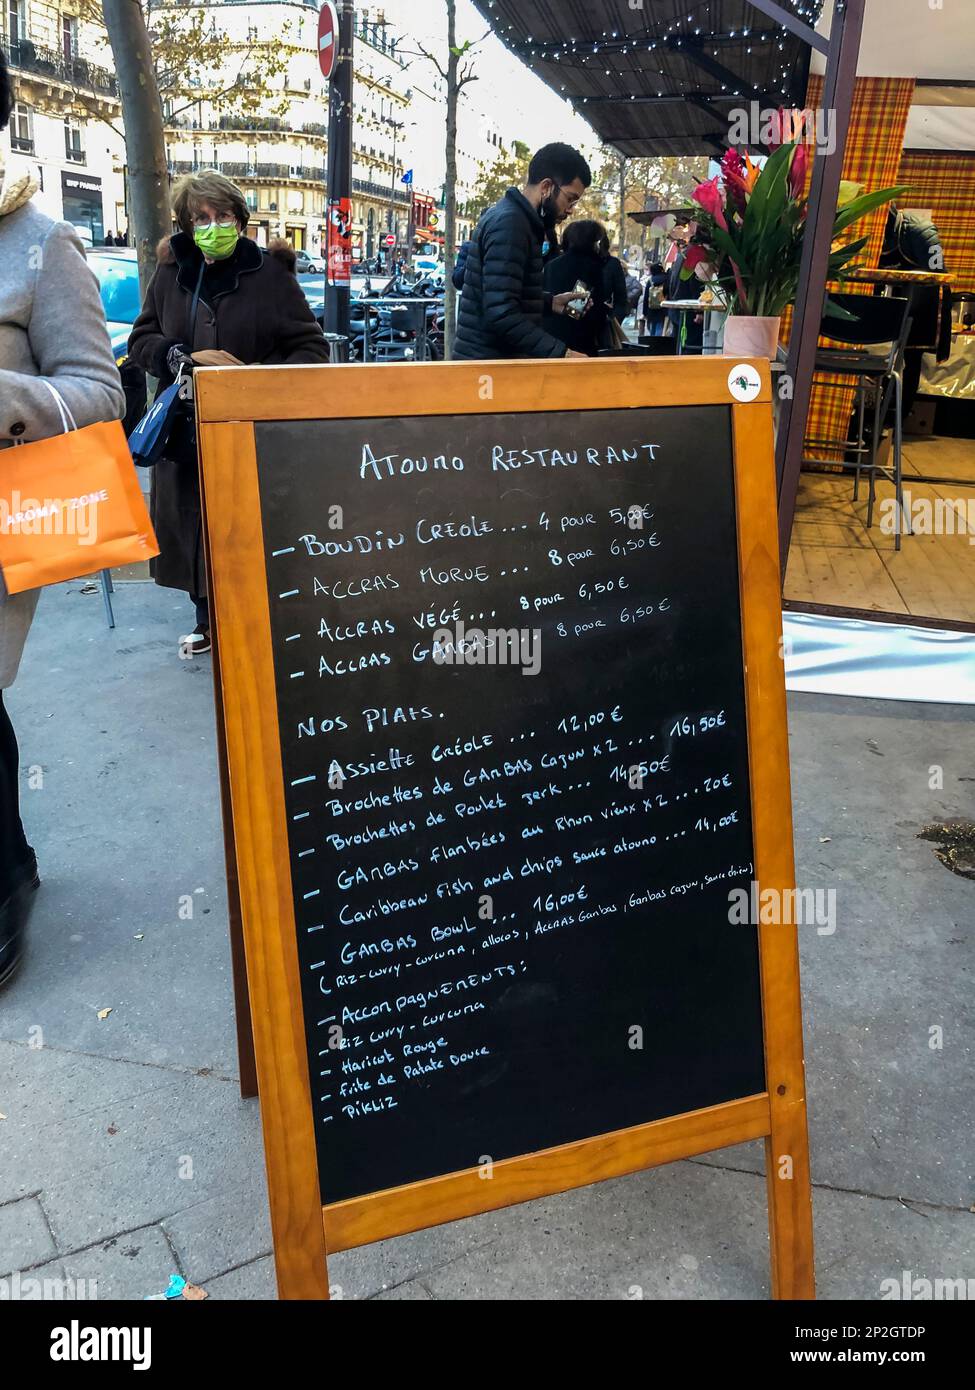 ATOUMO RESTAURANT
- BOUDIN CRÉOLE ... 4 POUR 5,00€
- ACCRAS MORUE ... 8 POUR 6,50€
- ACCRAS VÉGÉ... 8 POUR 6,50€
- ACCRAS GAMBAS ... 8 POUR 6,50€
NOS PLATS.
- ASSIETTE CRÉOLE ... 12,00€
- Brochettes de GAMBAS CAJUN x2 ... 16,50€
- Brochettes de Poulet Jerk ... 14,50€
- GAMBAS flambées au Rhum vieux x2 ... 20€
- Caribbean fish and chips sauce atoumo ... 14,00€
- GAMBAS BOWL ... 16,00€
(Riz-curry-curcuma, allocos, Accras Gambas, Gambas Cajun, Sauce chien)
- Accompagnements:
- Riz curry-curcuma
- Haricot Rouge
- frite de Patate Douce
- PIKLIZ
AROMA ZONE
BNP PARIBAS
alamy
Image ID: 2P2GTDP
www.alamy.com